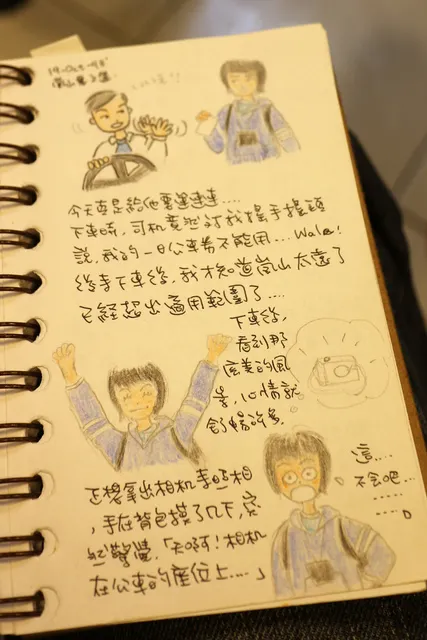 今天真是給他曹運連連....
下車時,司机竟然對我搖手搖頭
說,我的一日公車券不能用... Wale!
後來下車後,我才知道嵐山太遠了
已經超出適用範圍了....
下車後,
看到那
完美的風
景,心情就
舒暢許多.
正想拿出相机來照相
,手在背包摸了几下,突
然驚覺,「天啊!相机
在公車的座位上....」
這....
不会吧...